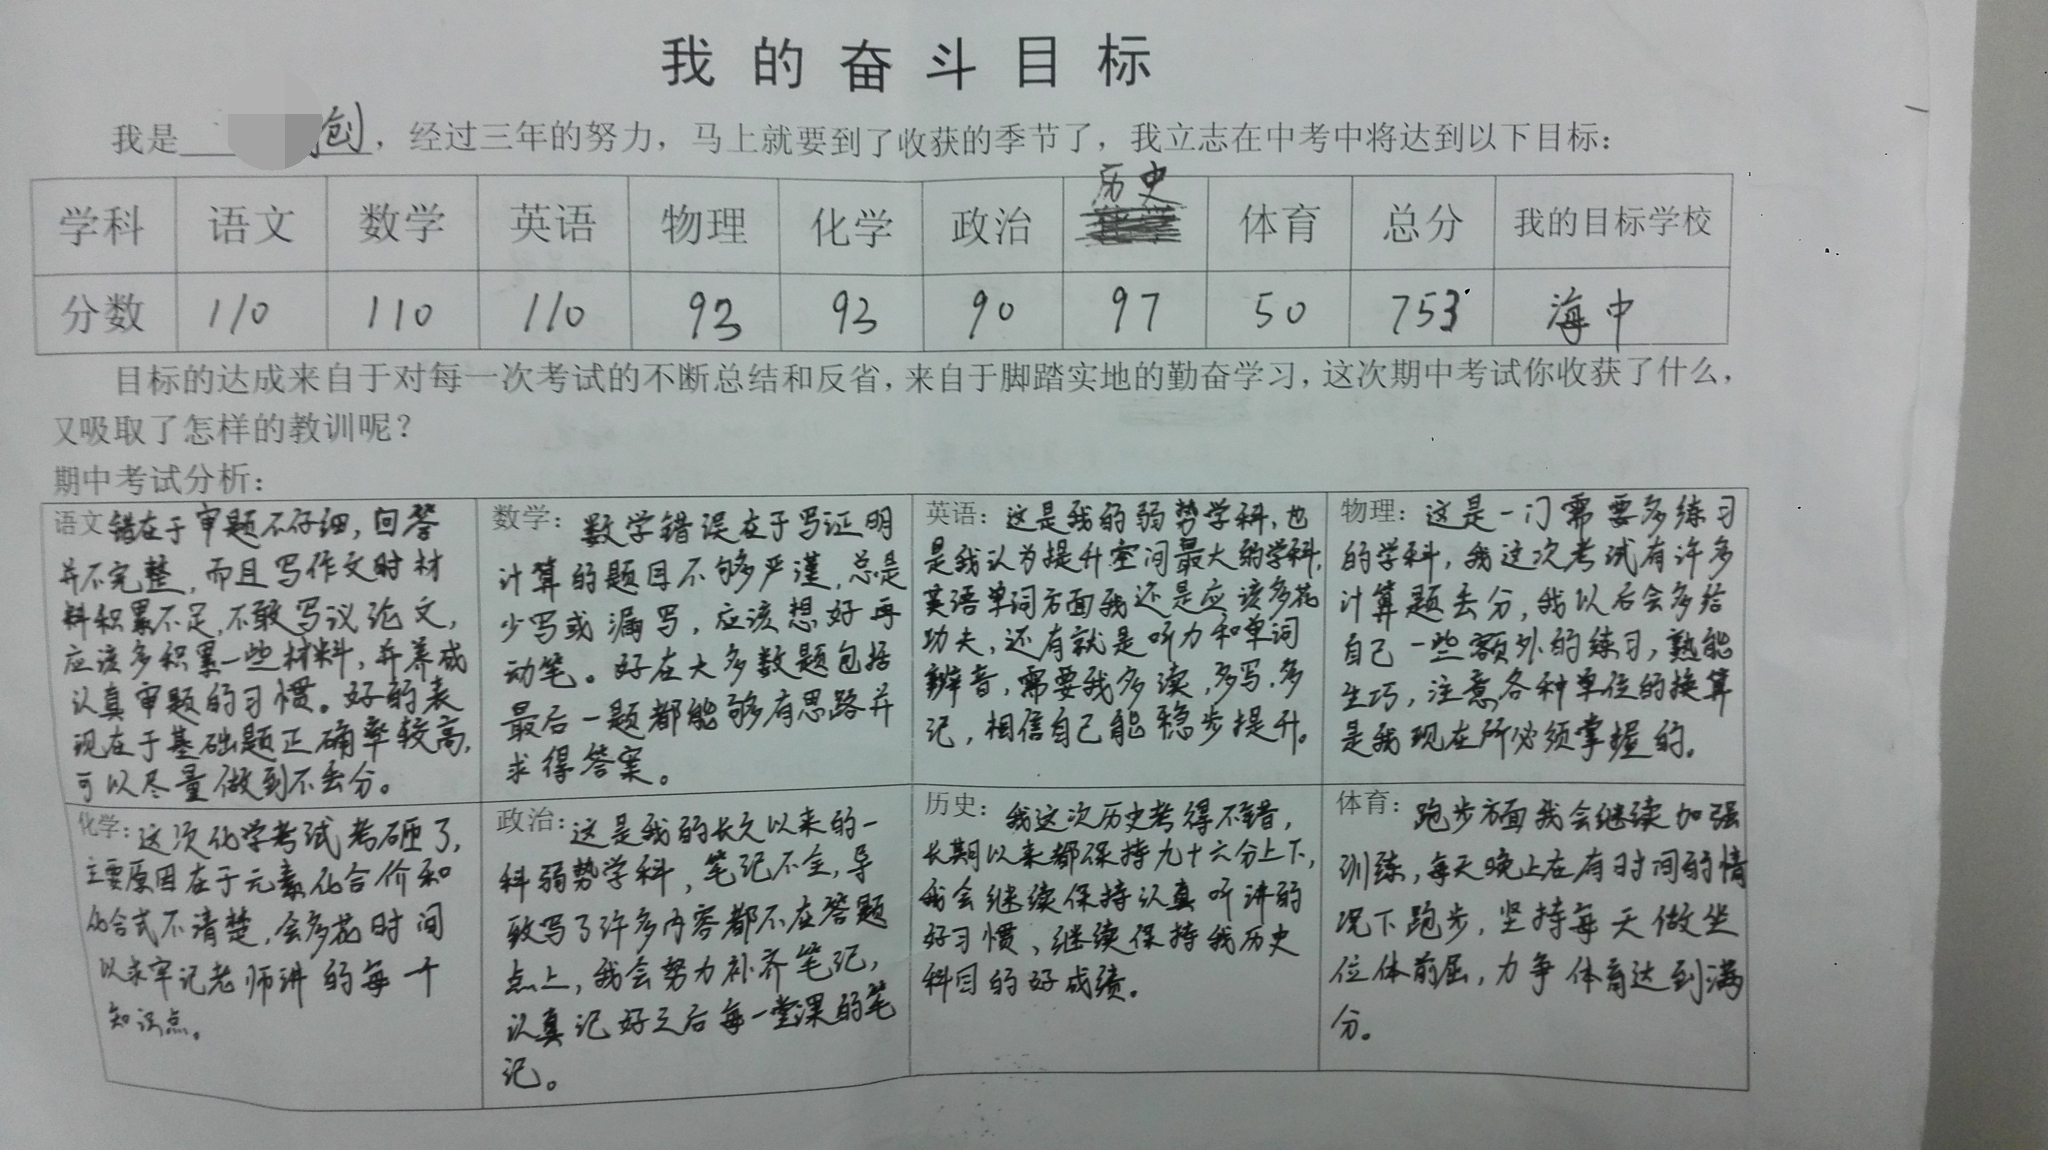 我的奋斗目标
我是 创，经过三年的努力，马上就要到了收获的季节了，我立志在中考中将达到以下目标：
学科 语文 数学 英语 物理 化学 政治 历史 体育 总分 我的目标学校
分数 110 110 110 93 93 90 97 50 753 海中
目标的达成来自于对每一次考试的不断总结和反省，来自于脚踏实地的勤奋学习，这次期中考试你收获了什么，
又吸取了怎样的教训呢？
期中考试分析：
语文错在于审题不仔细，回答
并不完整，而且写作文时材
料积累不足，不敢写议论文，
应该多积累一些材料，并养成
认真审题的习惯。好的表
现在于基础题正确率较高，
可以尽量做到不丢分。
数学：数学错误在于写证明
计算的题目不够严谨，总是
少写或漏写，应该想好再
动笔。好在大多数题包括
最后一题都能够有思路并
求得答案。
英语：这是我的弱势学科，也
是我认为提升空间最大的学科，
英语单词方面我还是应该多花
功夫，还有就是听力和单词
辨音，需要我多读，多写，多
记，相信自己能稳步提升。
物理：这是一门需要多练习
的学科，我这次考试有许多
计算题丢分，我以后会多给
自己一些额外的练习，熟能
生巧，注意各种单位的换算
是我现在所必须掌握的。
化学：这次化学考试考砸了，
主要原因在于元素化合价和
化合式不清楚，会多花时间
以求牢记老师讲的每一个
知识点。
政治：这是我的长久以来的一
科弱势学科，笔记不全，导
致写了许多内容都不在答题
点上，我会努力补齐笔记，
认真记好之后每一堂课的笔
记。
历史：我这次历史考得不错，
长期以来都保持九十六分上下，
我会继续保持认真听讲的
好习惯、继续保持我历史
科目的好成绩。
体育：跑步方面我会继续加强
训练，每天晚上在有时间的情
况下跑步，坚持每天做坐
位体前屈，力争体育达到满
分。